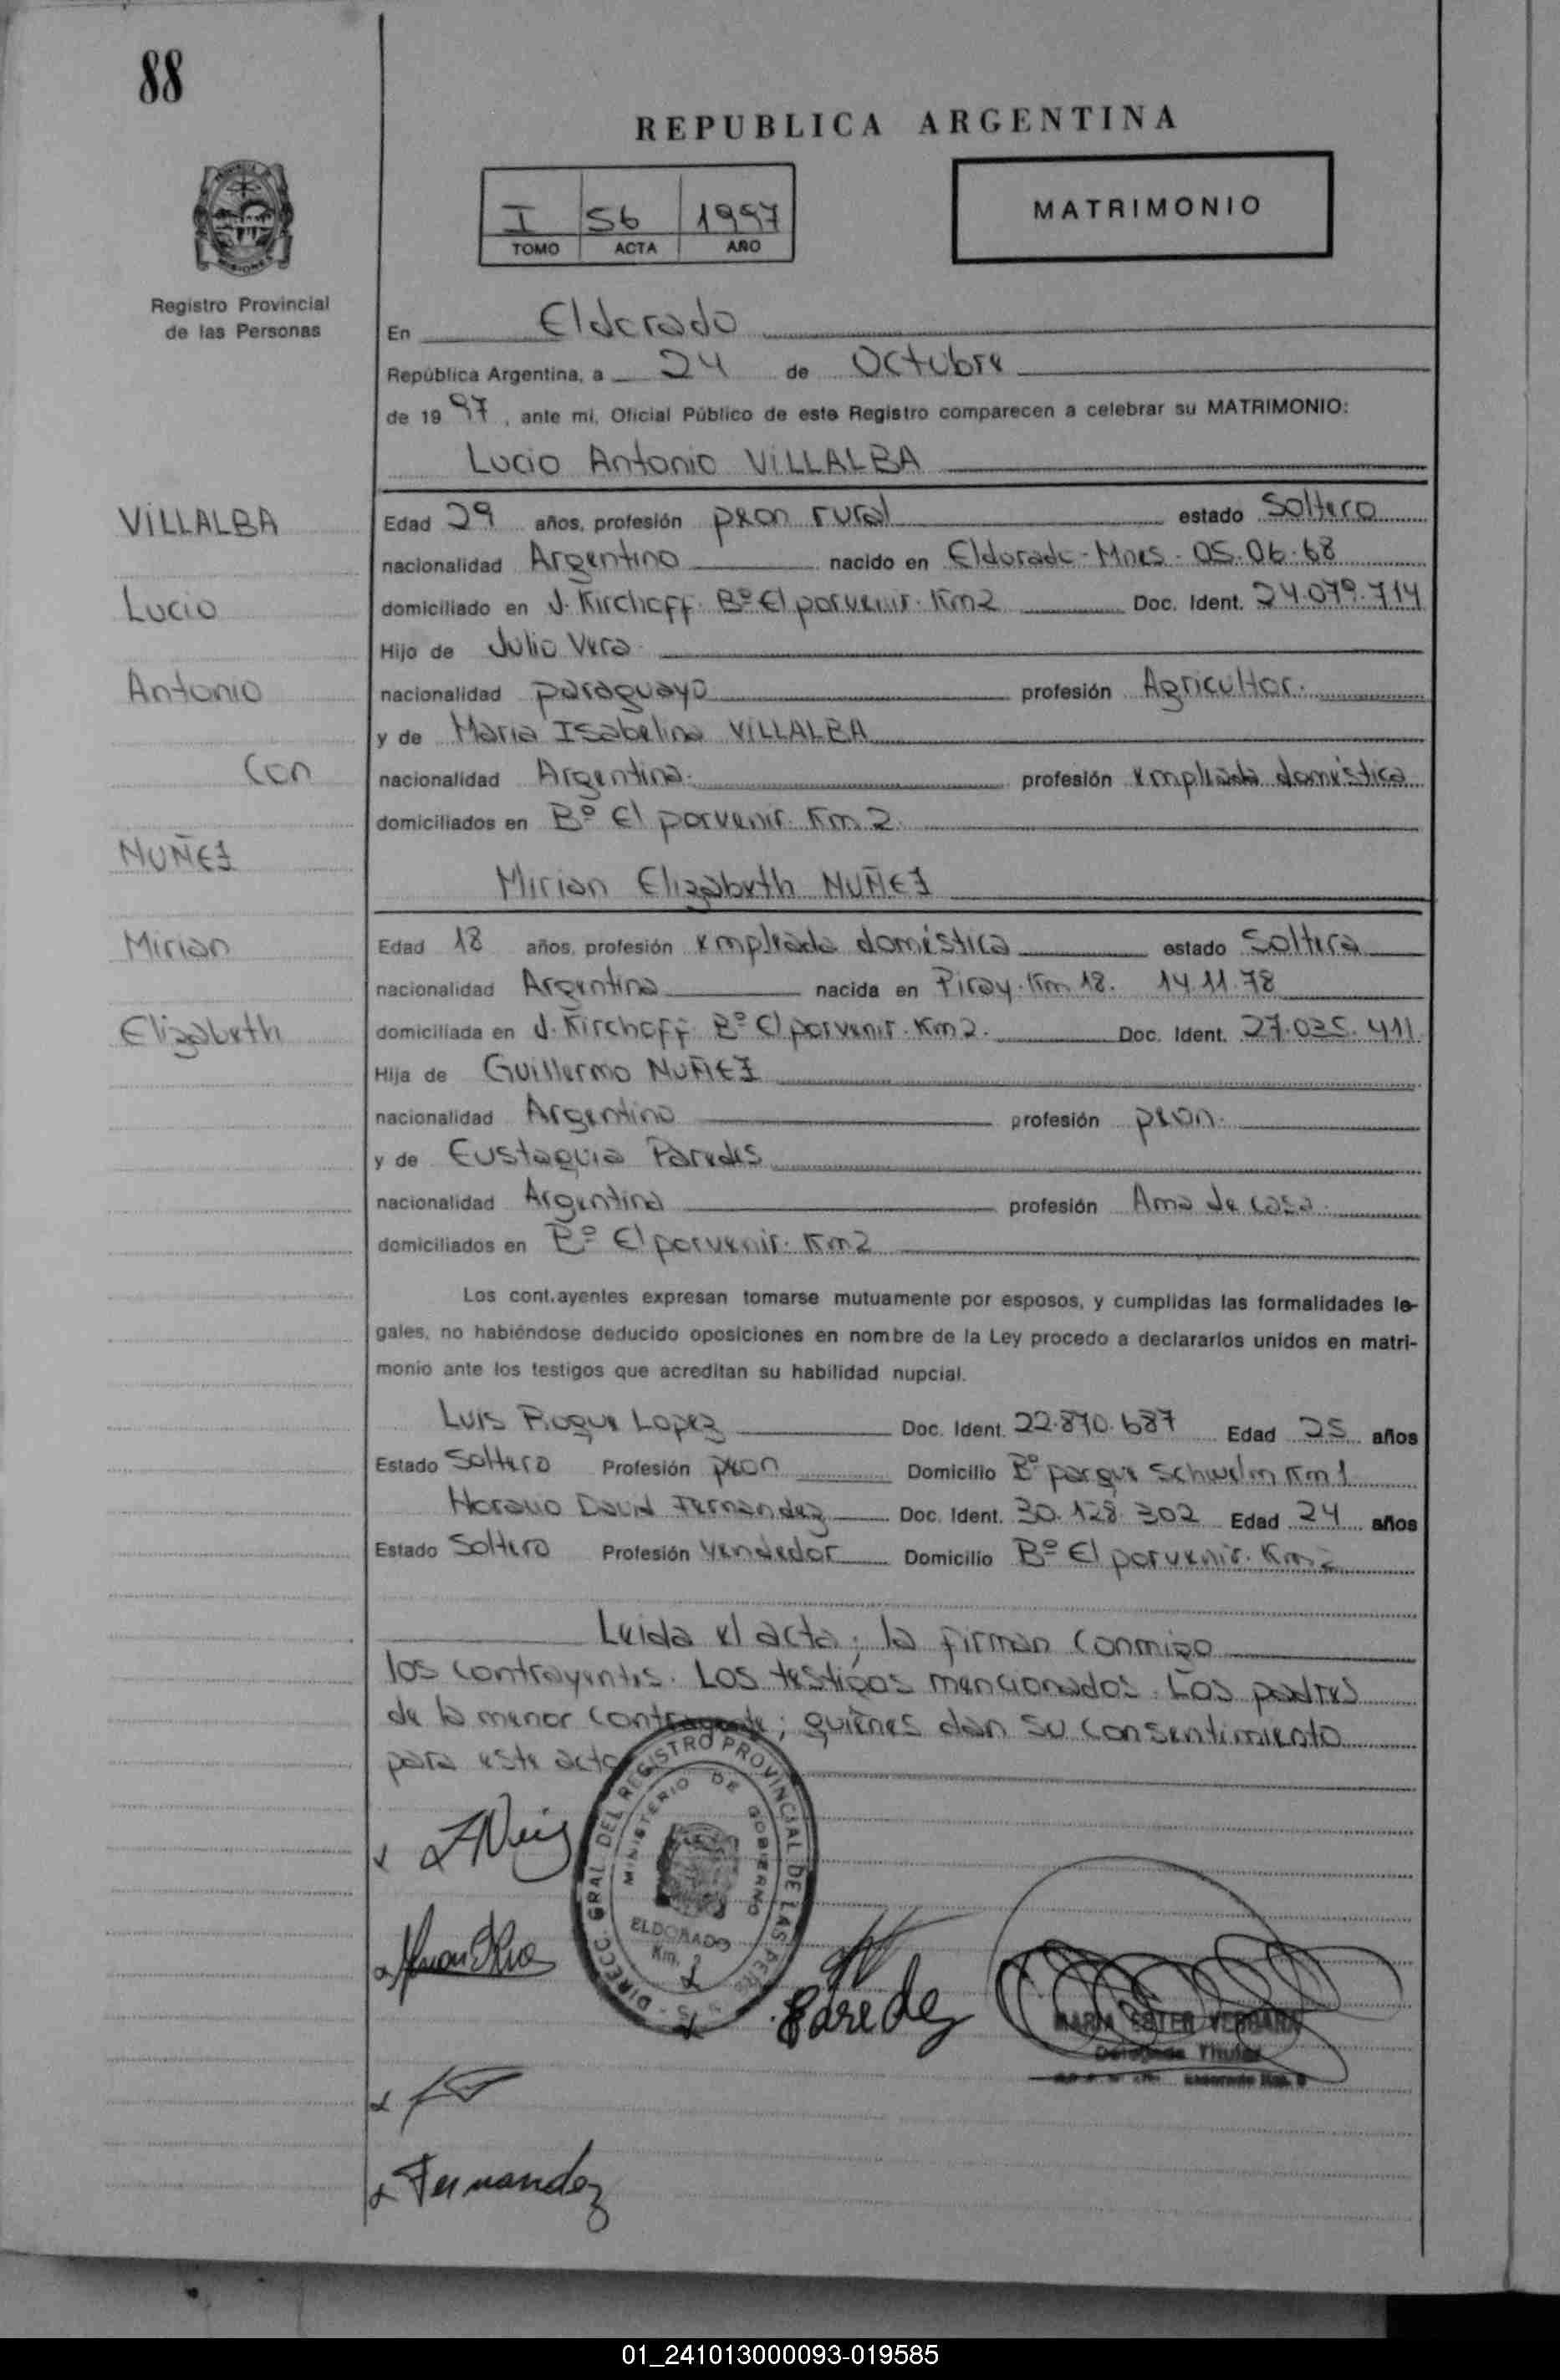 88
REPUBLICA ARGENTINA
I 56 1997
TOMO ACTA AÑO
MATRIMONIO
Registro Provincial
de las Personas
En Eldorado
República Argentina, a 24 de Octubre
de 1997, ante mi, Oficial Público de este Registro comparecen a celebrar su MATRIMONIO:
Lucio Antonio VILLALBA
VILLALBA
Lucio
Antonio
Con
NUÑEZ
Mirian
Elizabeth
Edad 29 años, profesión peon rural estado Soltero
nacionalidad Argentino nacido en Eldorado - Mnes - 05.06.68
domiciliado en J. Kirchoff. Bº El porvenir. Km2 Doc. Ident. 24.079.714
Hijo de Julio Vera
nacionalidad paraguayo profesión Agricultor.
y de Maria Isabelina VILLALBA
nacionalidad Argentina. profesión empleada doméstica
domiciliados en Bº El porvenir. Km 2.
Mirian Elizabeth NUÑEZ
Edad 18 años, profesión empleada doméstica estado Soltera
nacionalidad Argentina nacida en Piray. Km 18. 14.11.78
domiciliada en J. Kirchoff. Bº El porvenir. Km2. Doc. Ident. 27.035.411
Hija de Guillermo NUÑEZ
nacionalidad Argentino profesión peon.
y de Eustaquia Paredes
nacionalidad Argentina profesión Ama de casa.
domiciliados en Bº El porvenir. Km2
Los cont.ayentes expresan tomarse mutuamente por esposos, y cumplidas las formalidades le-
gales, no habiéndose deducido oposiciones en nombre de la Ley procedo a declararlos unidos en matri-
monio ante los testigos que acreditan su habilidad nupcial.
Luis Roque Lopez Doc. Ident. 22.870.687 Edad 25 años
Estado Soltero Profesión peon Domicilio Bº parque Schwelm Km1
Horacio David Fernandez Doc. Ident. 30.128.302 Edad 24 años
Estado Soltero Profesión Vendedor Domicilio Bº El porvenir. Km 2
Leida el acta; la firman conmigo
los contrayentes. Los testigos mencionados. Los padres
de la menor contrayente; quienes dan su consentimiento
para este acto
DIRECC. GRAL. DEL REGISTRO PROVINCIAL DE LAS PERS
MINISTERIO DE GOBIERNO
ELDORADO
Km. 2
Paredez
MARIA ESTER VERGARA
Delegada Titular
Fernandez
01_241013000093-019585